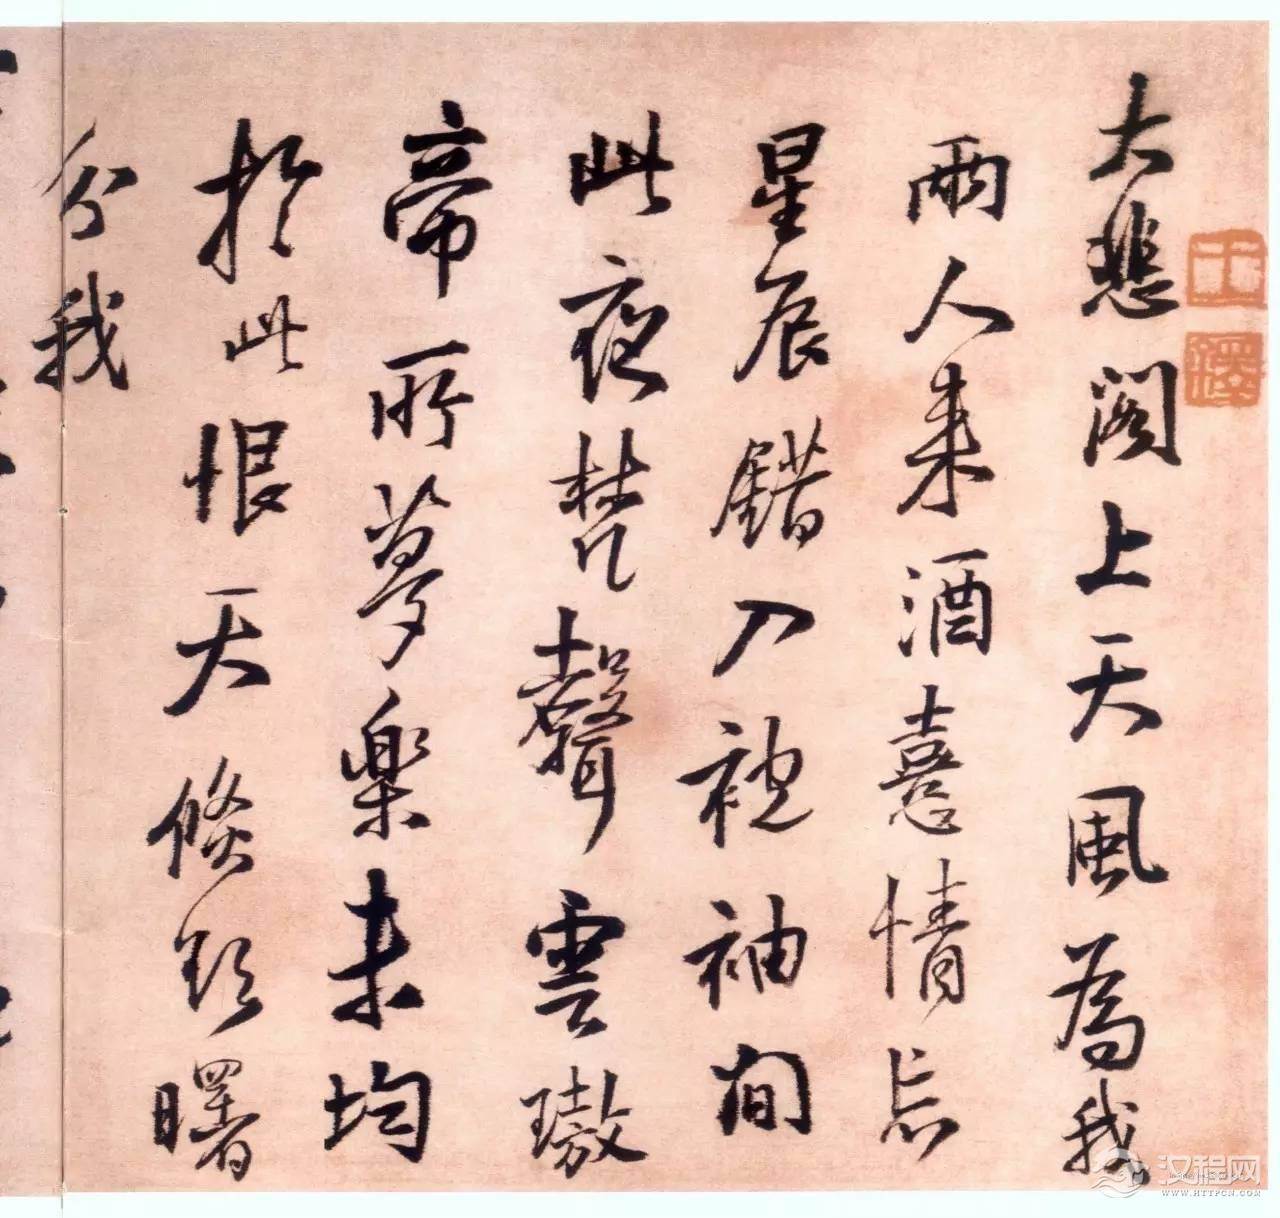 大悲阁上天風為我
兩人来酒憙情忘
星辰錯入䘳袖間
此夜梵聲雲璈
帝所夢樂未均
於此恨天倏欲曙
分我
王
鐸
汉程网
WWW.HTTPCN.COM